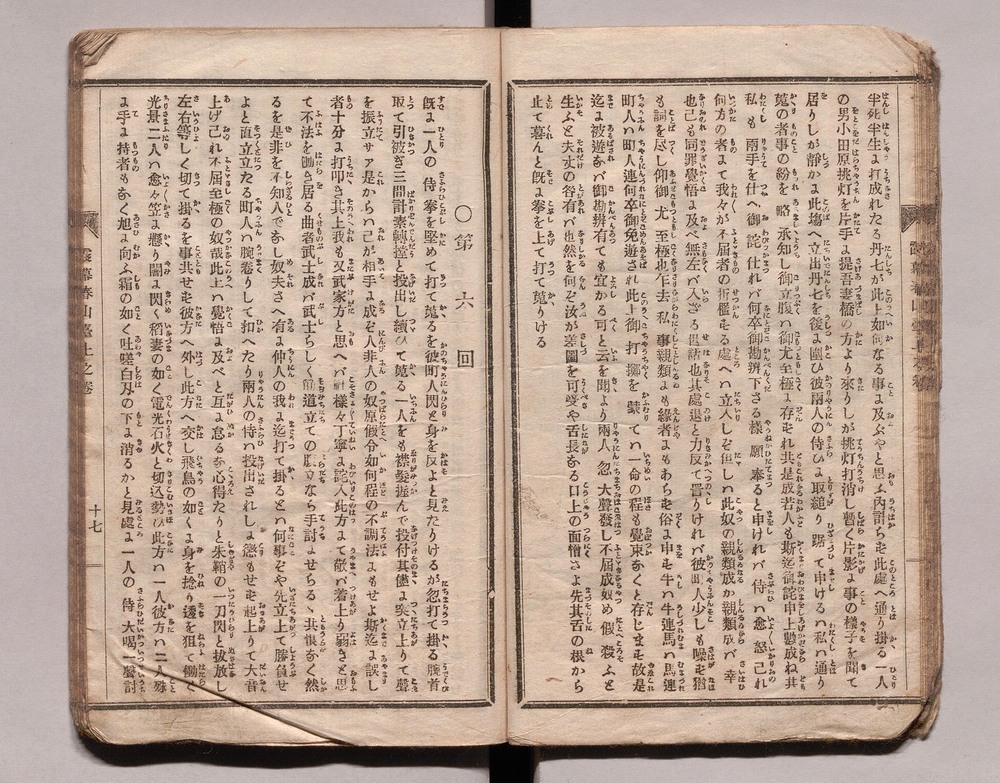 半死半生よ打成れたる丹七が此上如何なる事よ及ぶやと思ふ内誰ちも此處へ通り掛る一人
の男小田原挑灯を片手よ提吾妻橋の方より來りしが挑灯打消し暫く片影よ事の樣子を聞て
居りしが靜かよ此塲へ立出丹七を後よ圍ひ彼兩人の侍ひよ取縋り踞て申けるハ私ハ通り
蒐の者事の紛を略承知し御立腹ハ御尤至極よ存ぜれ共是成若人も斯迄御詫申上嘆成ね其
私も兩手を仕へ御詫仕れバ何卒御勘辨下さる樣願奉ると申けれバ侍ハ愈怒己れ
何方の者よて我々が不届者の折檻をる處へハ立入しぞ但し此奴の親類成か親類成バ幸
也己も同罪覺悟よ及べ無左バ入ざる世話也其處退と力反て詈りけれバ彼町人少しも噪を猶
も詞を尽し仰御尤至極也乍去私事親類よも緣者よもあらぞ俗よ申も牛ハ牛連馬ハ馬連
町人ハ町人連何卒御免遊され此上御打擲を蒙てハ一命の程も覺束なくと存じまも故是
迄よ被遊なバ御勘辨有ても宜かる可と云を聞より兩人忽大聲發し不届成奴め假令ふと
生ふと夫丈の咎有バ也然を何ぞ汝が差圖を可受や舌長なる口上の面憎さよ先其舌の根から
止て暮んと既よ拳を上て打て蒐りける
○第六回
既よ一人の侍拳を堅めて打て蒐るを彼町人閃と身を反よと見たりけるが忽打て掛る腕首
取て引被ぎ三間計素轉摚と投出し續ひて蒐る一人をも襟髪握んで投付其儘よ突立上りて聲
を振立サア是からハ己が相手よ成ぞ人非人の奴原假令如何程の不調法よもせよ斯迄よ誤し
者を十分よ打叩き其上我も又武家方と思へバ神樣々丁寧よ詫入此方よて敵バ着上り弱きと思
て不法を働き居る曲者武士成バ武士らしく筋道立ての腹立なら手討よせらるゝ共恨なく然
るを是非を不知人でなし奴夫さへ有よ仲人の我よ迄打て掛るとハ何事ぞや先立上て勝負せ
よと直立立たる町人ハ腕卷りして扣へたり兩人の侍ハ投出されしよ懲もせを起上りて大音
上げ己れ不届至極の奴哉此上ハ覺悟よ及べと互よ怠るなを心得たりと朱鞘の一刀閃と拔放し
左右等しく切て掛るを事共せも彼方へ外し此方へ交し飛鳥の如くよ身を捻り透を狙て働く
光景二人ハ愈々笠よ懸り闇よ閃く稻妻の如く電光石火と切込勢ひ此方ハ一人彼方ハ二人殊
よ手よ持者もなく旭よ向ふ霜の如く吐嗟白刄の下よ消るかと見處よ一人の侍大喝一聲討
十七